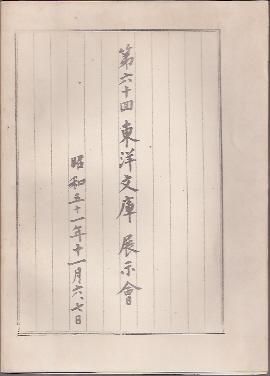 第六十回東洋文庫展示會
昭和五十一年十一月六、七日